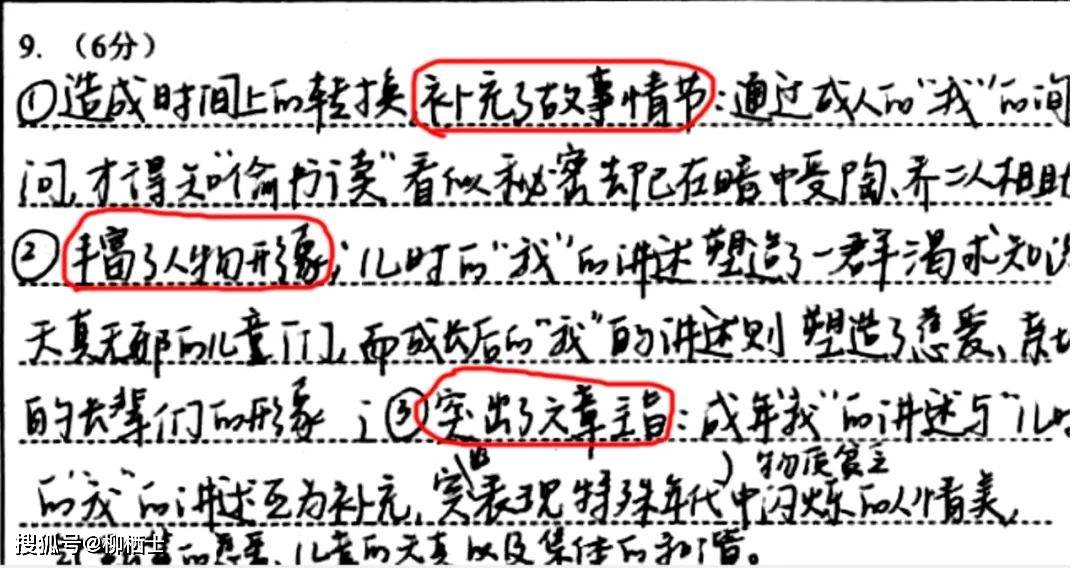 9. （6分）
①造成时间上的转换,补充了故事情节:通过成人的"我"的询
问,才得知"偷书读"看似秘密却已在暗中受陶、乔二人相助
②丰富了人物形象;儿时的"我"的讲述塑造了一群渴求知识
天真无邪的儿童们,而成长后的"我"的讲述则塑造了慈爱、亲切
的长辈们的形象;③突出了文章主旨:成年"我"的讲述与"儿时
物质贫乏
的"我"的讲述互为补充,表现特殊年代中闪烁的人情美,
的慈爱、儿童的天真以及集体的和谐。
搜狐号@柳栖士